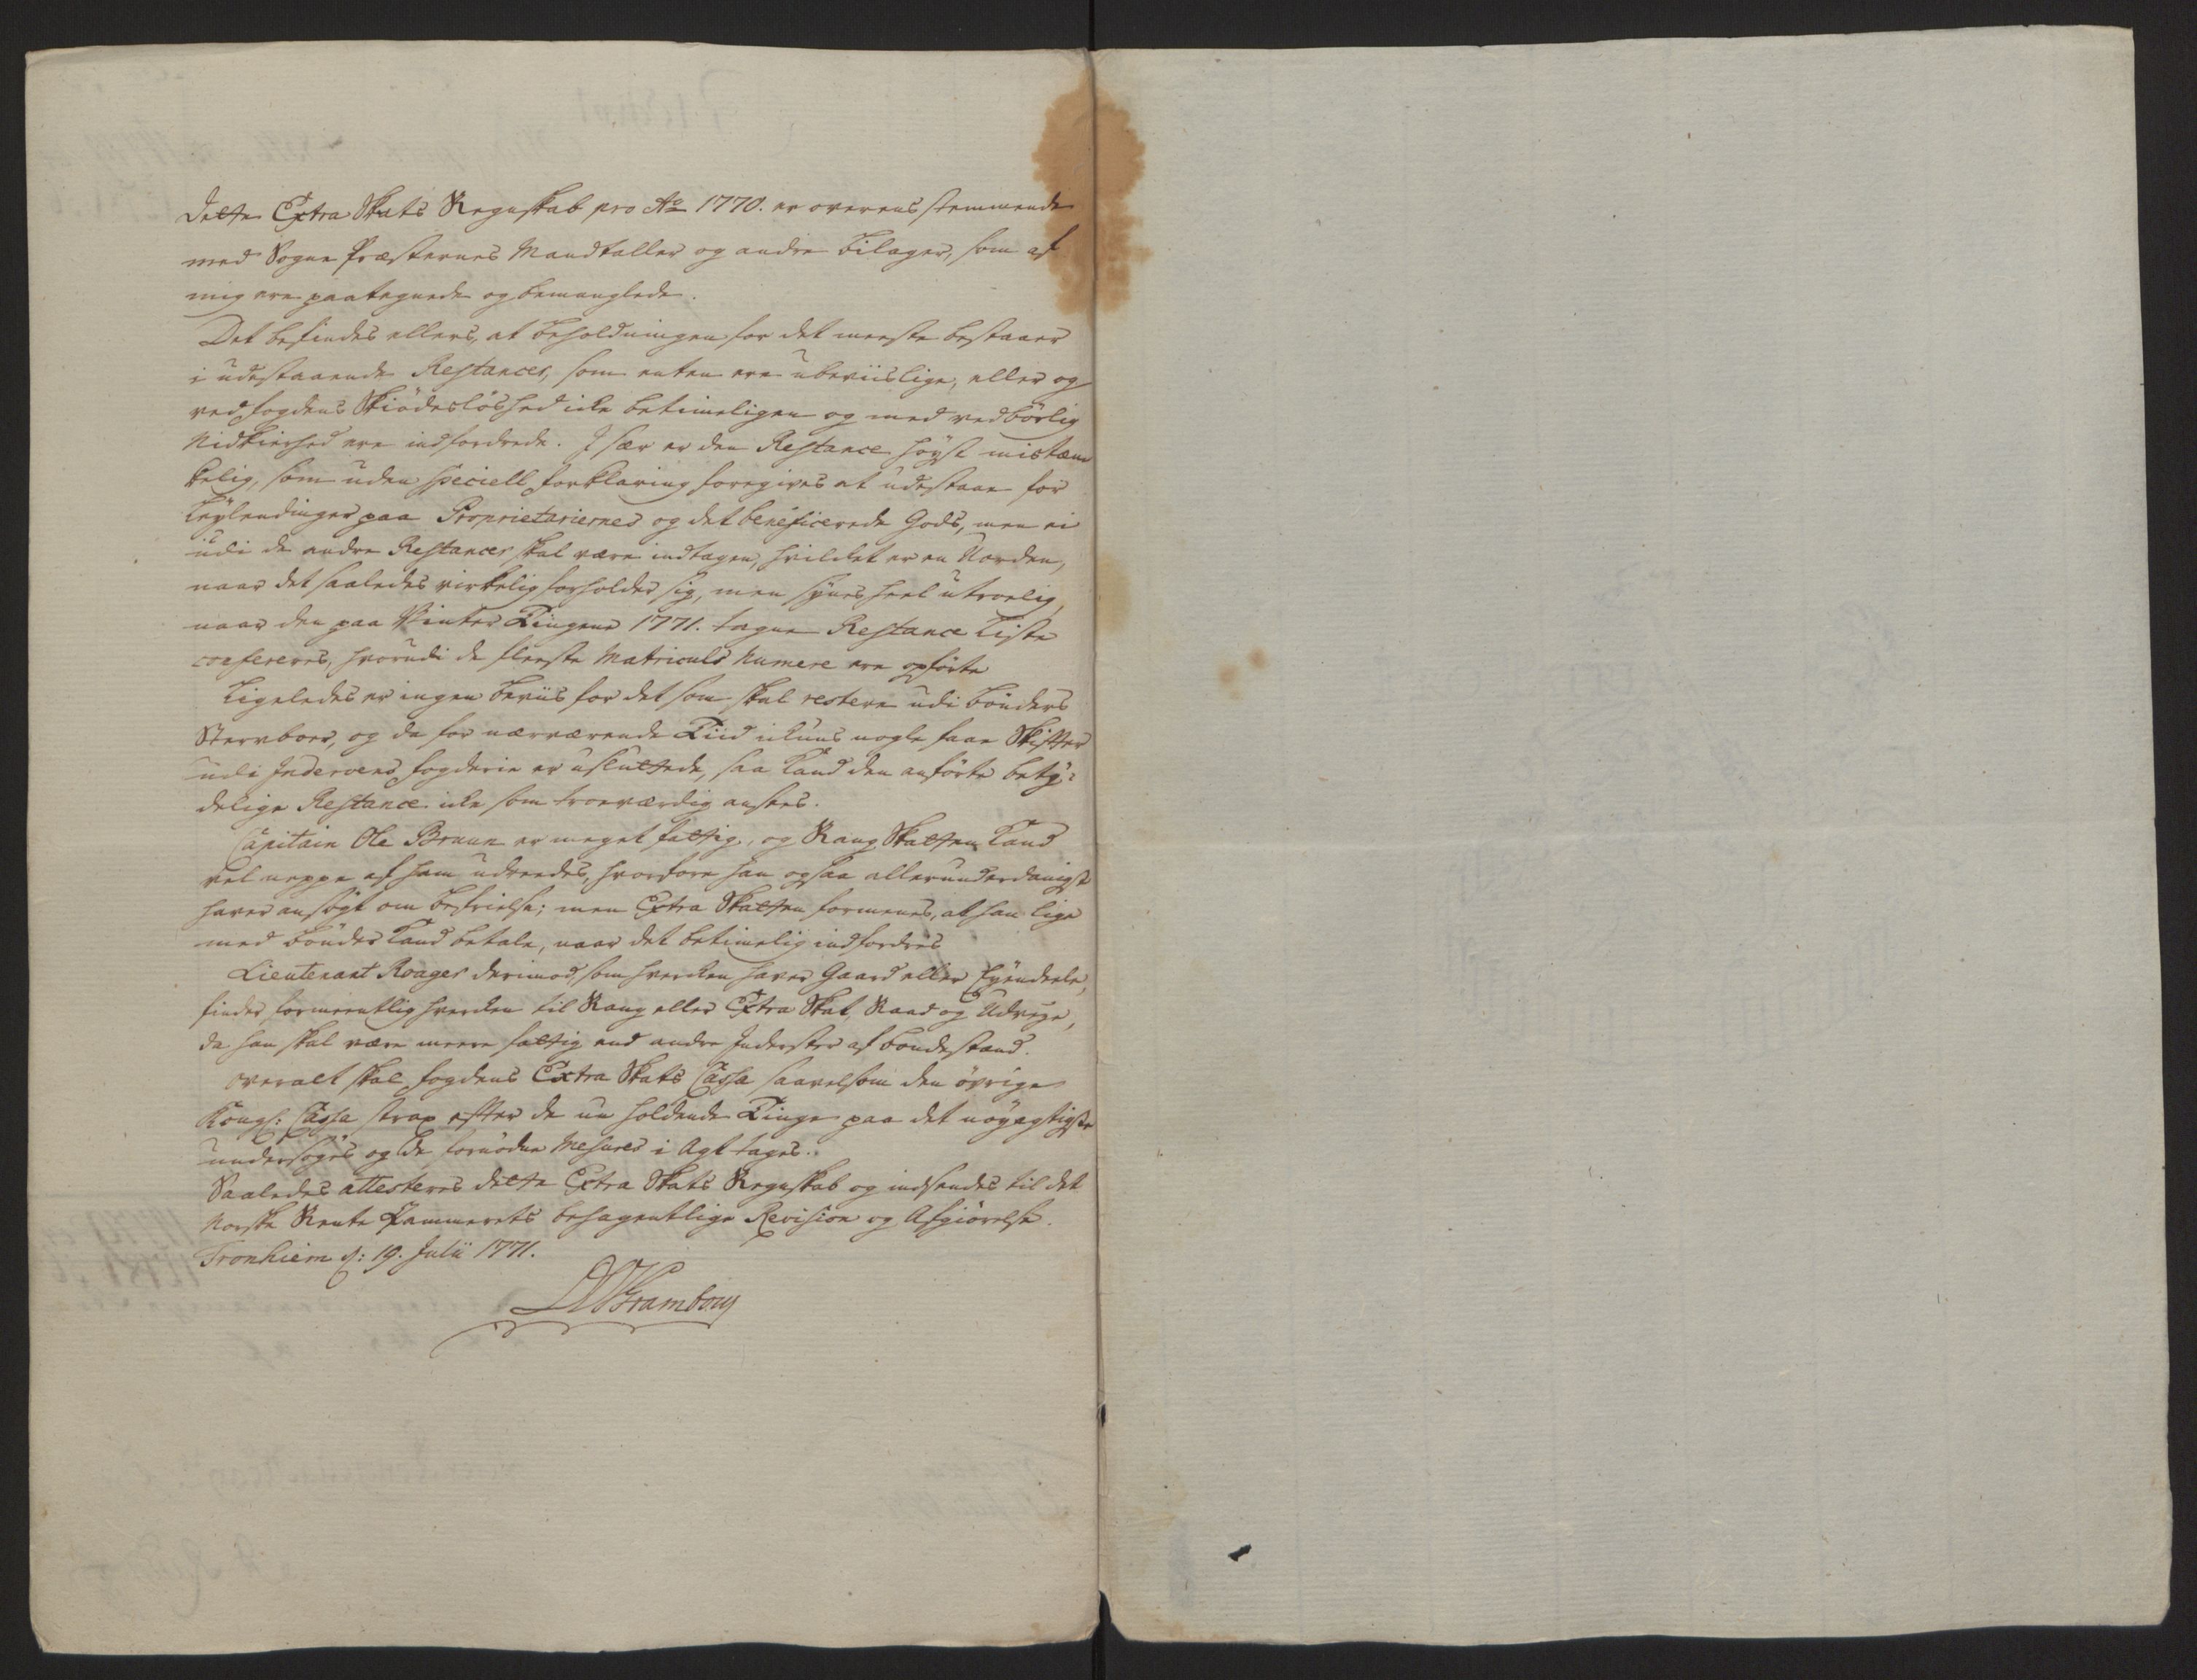 Dette Extra Skats Regnskab pro Ao 1770. er overeens stemmende
med Sogne Præsternes Mandtaller og andre bilager, som af
mig ere paategnede og bemanglede.
Det befindes ellers, at beholdningen for det meeste bestaaer
i udestaaende Restancer, som enten ere ubeviislige, eller og
ved fogdens Skiödeslöshed icke betimeligen og med vedbörlig
Nidkierhed ere indfordrede. I sær er den Restance höyst mistæn
kelig, som uden speciell forklaring foregives at udestaae for
Leylendinger paa Proprietariernes og det beneficerede Gods, men ei
udi de andre Restancer skal være indtagen, hvilcket er en Uorden,
naar det saaledes virkelig forholder sig, men synes heel utroelig,
naar den paa Vinter Tingene 1771. tagne Restance Liste
confereres, hvorudi de fleeste Matriculs Numere ere opförte
Ligeledes er ingen beviis for det som skal restere udi bönders
Stervboer, og da for nærværende Tiid ickuns nogle faae Skifter
udi Inderoens fogderie er usluttede, saa kand den anförte bety-
delige Restance icke som troeværdig ansees.
Capitain Ole Bruun er meget fattig, og Rang Skatten kand
vel neppe af ham udreedes, hvorfore han ogsaa allerunderdanigst
haver ansögt om befrielse; men Extra Skatten formenes, at han lige
med bönder kand betale, naar det betimelig indfordres
Lieutenant Roager derimod, som hvercken haver Gaard eller Eyendeele,
finder formeentlig hvercken til Rang eller Extra Skat, Raad og Udveye,
da han skal være meere fattig end andre Inderster af bondestand.
overalt skal fogdens Extra Skats Cassa saavelsom den övrige
Kongl: Cassa strax efter de nu holdende Tinge paa det nöyagtigste
undersöges og de fornödne Mesures i Agt tages.
Saaledes attesteres dette Extra Skats Regnskab og indsendes til det
Norske Rente Kammerets behagentlige Revision og Afgiörelse.
Tronhiem d: 19. Julii 1771.